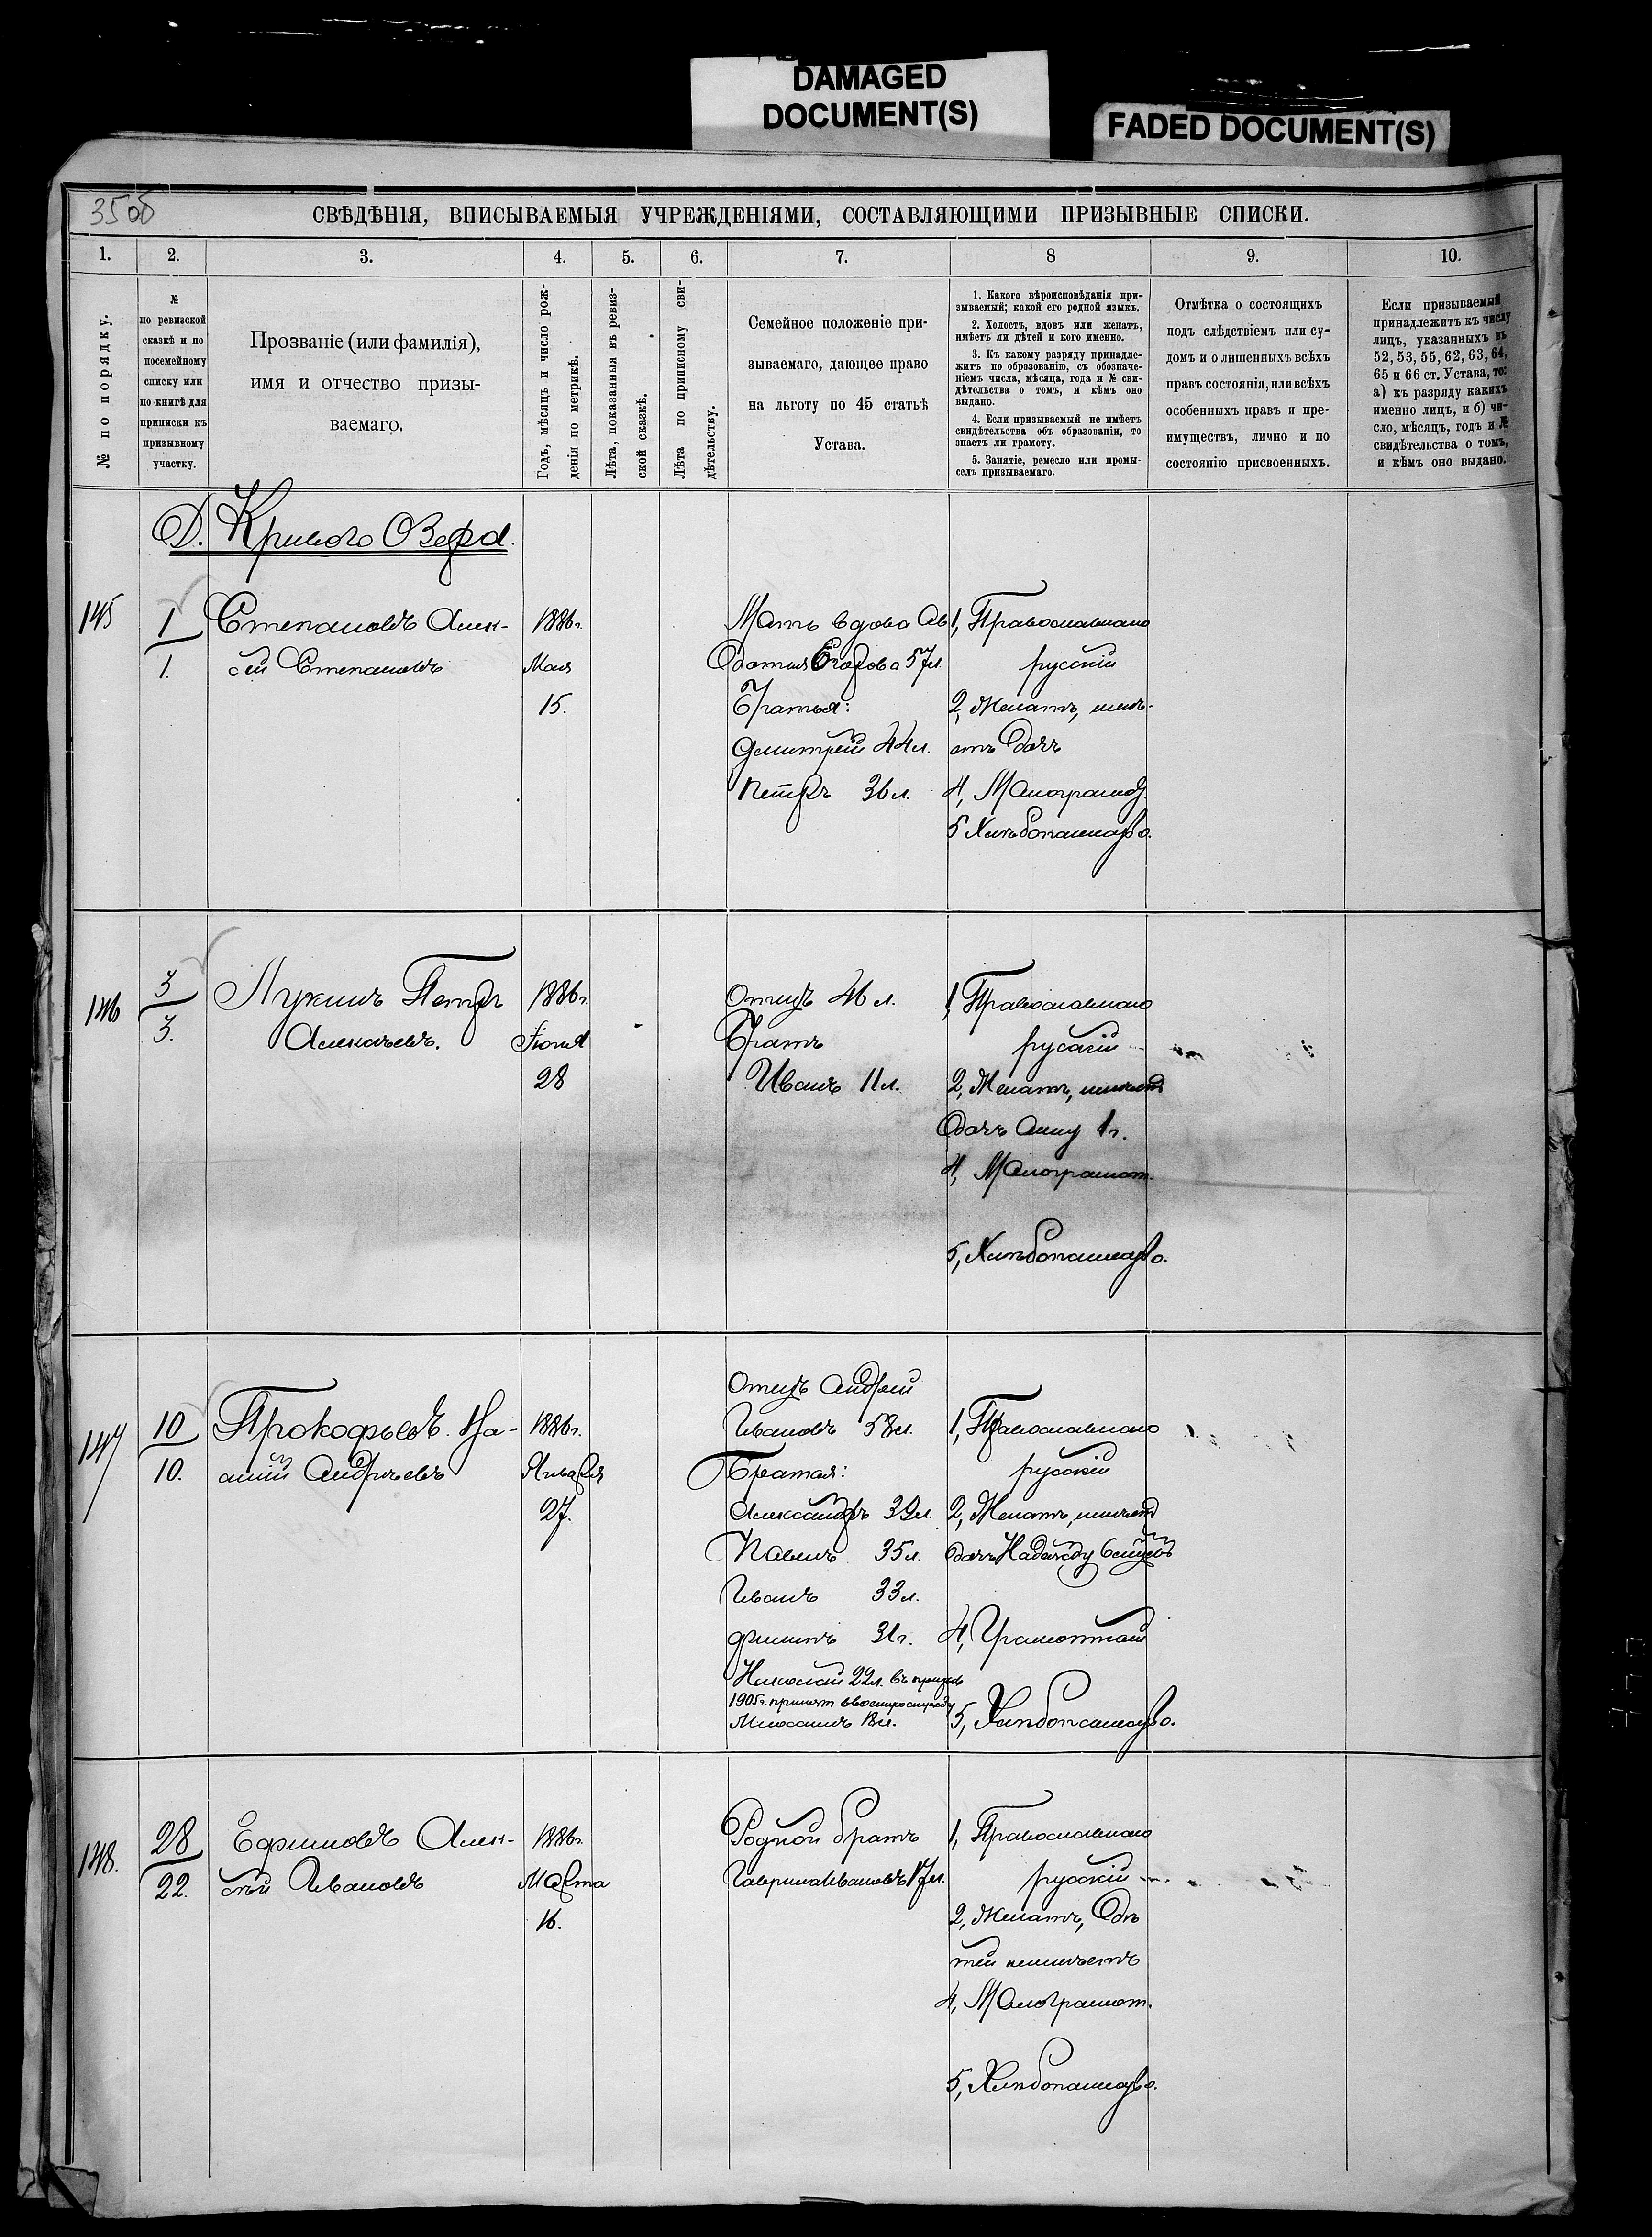 DAMAGED
DOCUMENT(S)
FADED DOCUMENT(S)
35об
СВѢДѢНІЯ, ВПИСЫВАЕМЫЯ УЧРЕЖДЕНІЯМИ, СОСТАВЛЯЮЩИМИ ПРИЗЫВНЫЕ СПИСКИ.
1. 2. 3. 4. 5. 6. 7. 8 9. 10.
№ по порядку.
№
по ревизской
сказкѣ и по
посемейному
списку или
по книгѣ для
приписки къ
призывному
участку.
Прозваніе (или фамилія),
имя и отчество призы-
ваемаго.
Годъ, мѣсяцъ и число рож-
денія по метрикѣ.
Лѣта, показанныя въ ревиз-
ской сказкѣ.
Лѣта по приписному сви-
дѣтельству.
Семейное положеніе при-
зываемаго, дающее право
на льготу по 45 статьѣ
Устава.
1. Какого вѣроисповѣданія при-
зываемый; какой его родной языкъ.
2. Холостъ, вдовъ или женатъ,
имѣетъ ли дѣтей и кого именно.
3. Къ какому разряду принадле-
житъ по образованію, съ обозначе-
ніемъ числа, мѣсяца, года и № сви-
дѣтельства о томъ, и кѣмъ оно
выдано.
4. Если призываемый не имѣетъ
свидѣтельства объ образованіи, то
знаетъ ли грамоту.
5. Занятіе, ремесло или промы-
селъ призываемаго.
Отмѣтка о состоящихъ
подъ слѣдствіемъ или су-
домъ и о лишенныхъ всѣхъ
правъ состоянія, или всѣхъ
особенныхъ правъ и пре-
имуществъ, лично и по
состоянію присвоенныхъ.
Если призываемый
принадлежитъ къ числу
лицъ, указанныхъ въ
52, 53, 55, 62, 63, 64,
65 и 66 ст. Устава, то:
а) къ разряду какихъ
именно лицъ, и б) чи-
сло, мѣсяцъ, годъ и №
свидѣтельства о томъ,
и кѣмъ оно выдано.
Д. Кривого Озера.
145
1
1.
Степановъ Алек-
сѣй Степановъ
1886г.
Мая
15.
Мать вдова Ав
дотья Егорова 57л.
Братья:
Дмитрій 44л.
Петръ 36л.
1, Православнаго
русскій
2, Женатъ, имѣ-
етъ дочь
4, Малограмот.
5 Хлѣбопашество.
146
3
3.
Лукинъ Петръ
Алексѣевъ.
1886г.
Іюня
28
Отецъ 46 л.
Братъ
Иванъ 11л.
1, Православнаго
русскій
2, Женатъ, имѣетъ
дочь Анну 1г.
4, Малограмот.
5, Хлѣбопашество.
147
10
10.
Прокофьевъ
Андреевъ
1886г.
Января
27.
Отецъ Андрей
Ивановъ 58л.
Братья:
Александръ 39л.
Павелъ 35л.
Иванъ 33л.
Филипъ 31г.
Николай 22л. въ призывъ
1905г. принятъ въ военную службу
18л.
1, Православнаго
русскій
2, Женатъ, имѣетъ
дочь Надежду 6 мѣсяцевъ
4, Грамотный
5, Хлѣбопашество.
148.
28
22.
Ефимовъ Алек-
сѣй Ивановъ
1886г.
Марта
16.
Родной братъ
Гаврилъ Ивановъ 17л.
1, Православнаго
русскій
2, Женатъ, дѣ
тей неимѣетъ
4, Малограмот.
5, Хлѣбопашество.